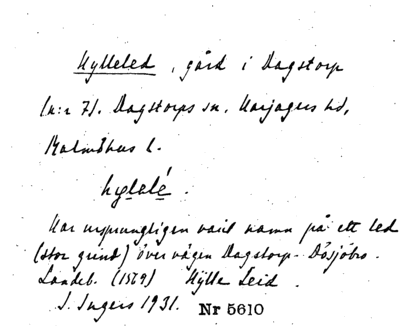 Hylleled, gård i Dagstorp
(n:r 7). Dagstorps sn, Harjagers hd,
Malmöhus l.
hylelé.
Har ursprungligen varit namn på ett led
(stor grind) över vägen Dagstorp - Dösjöbro.
Landeb. (1569) Hylle Leid.
I. Ingers 1931. Nr 5610